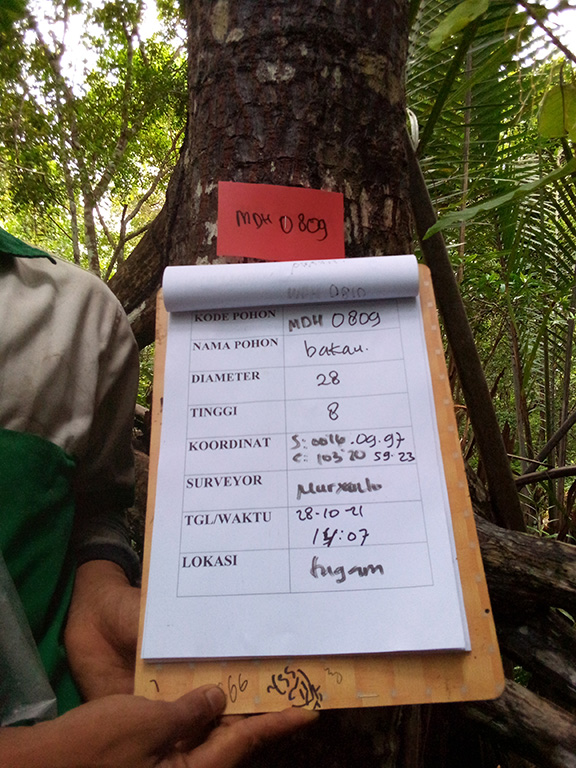 MDH 0809
KODE POHON MDH 0809
NAMA POHON bakau.
DIAMETER 28
TINGGI 8
KOORDINAT S: 0016.09.97
E: 103°20 59.23
SURVEYOR
TGL/WAKTU 28-10-21
14:07
LOKASI tugam
66